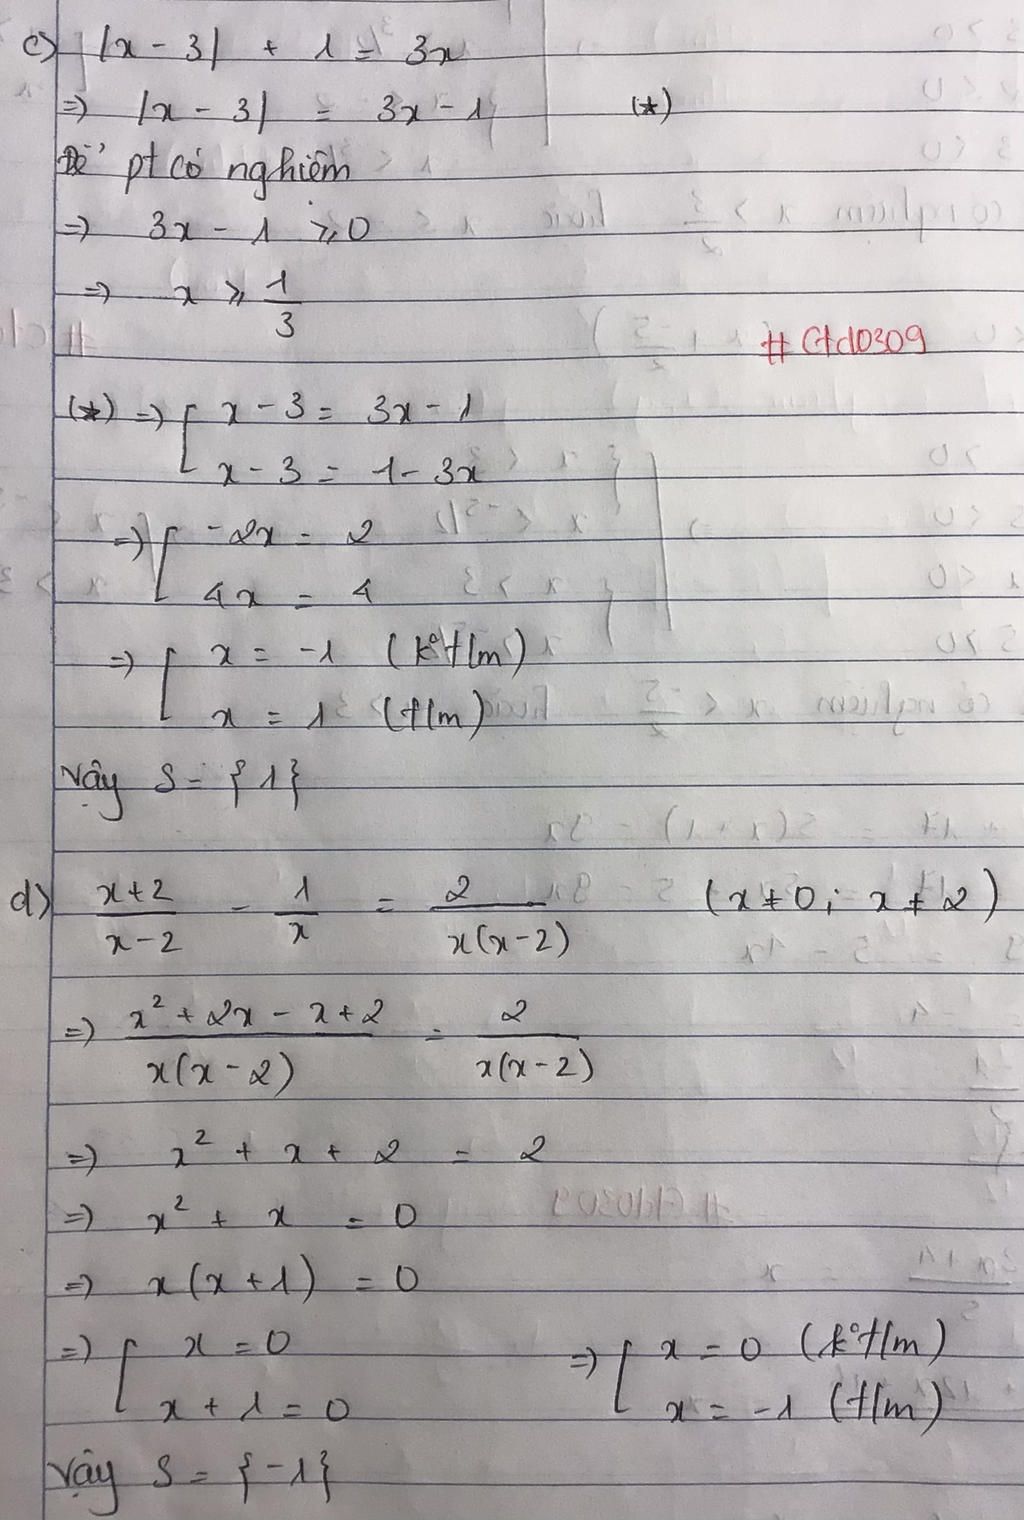 c) |x - 3| + 1 = 3x
=> |x - 3| = 3x - 1 (*)
Để pt có nghiệm
=> 3x - 1 ⩾ 0
=> x ⩾ 1/3
# Ctd0309
(*) => [ x - 3 = 3x - 1
x - 3 = 1 - 3x
=> [ -2x = 2
4x = 4
=> [ x = -1 (k° t/m)
x = 1 (t/m)
Vậy S = {1}
d) x+2/x-2 - 1/x = 2/x(x-2) (x ≠ 0; x ≠ 2)
=> x² + 2x - x + 2/x(x-2) = 2/x(x-2)
=> x² + x + 2 = 2
=> x² + x = 0
=> x(x+1) = 0
=> [ x = 0 => [ x = 0 (k° t/m)
x + 1 = 0 x = -1 (t/m)
Vậy S = {-1}